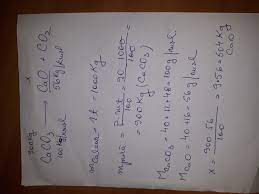 900kg x
CaCO₃ ⟶ CaO + CO₂
100kg/kmol 56g/kmol
mCalcar = 1t = 1000Kg
mpură = = 90·1000/100 =
= 900Kg (CaCO₃)
MCaCO₃ = 40+12+48=100g/kmol
MCaO = 40+16=56g/kmol
x = 900·56/100 = 9·56=504Kg
CaO